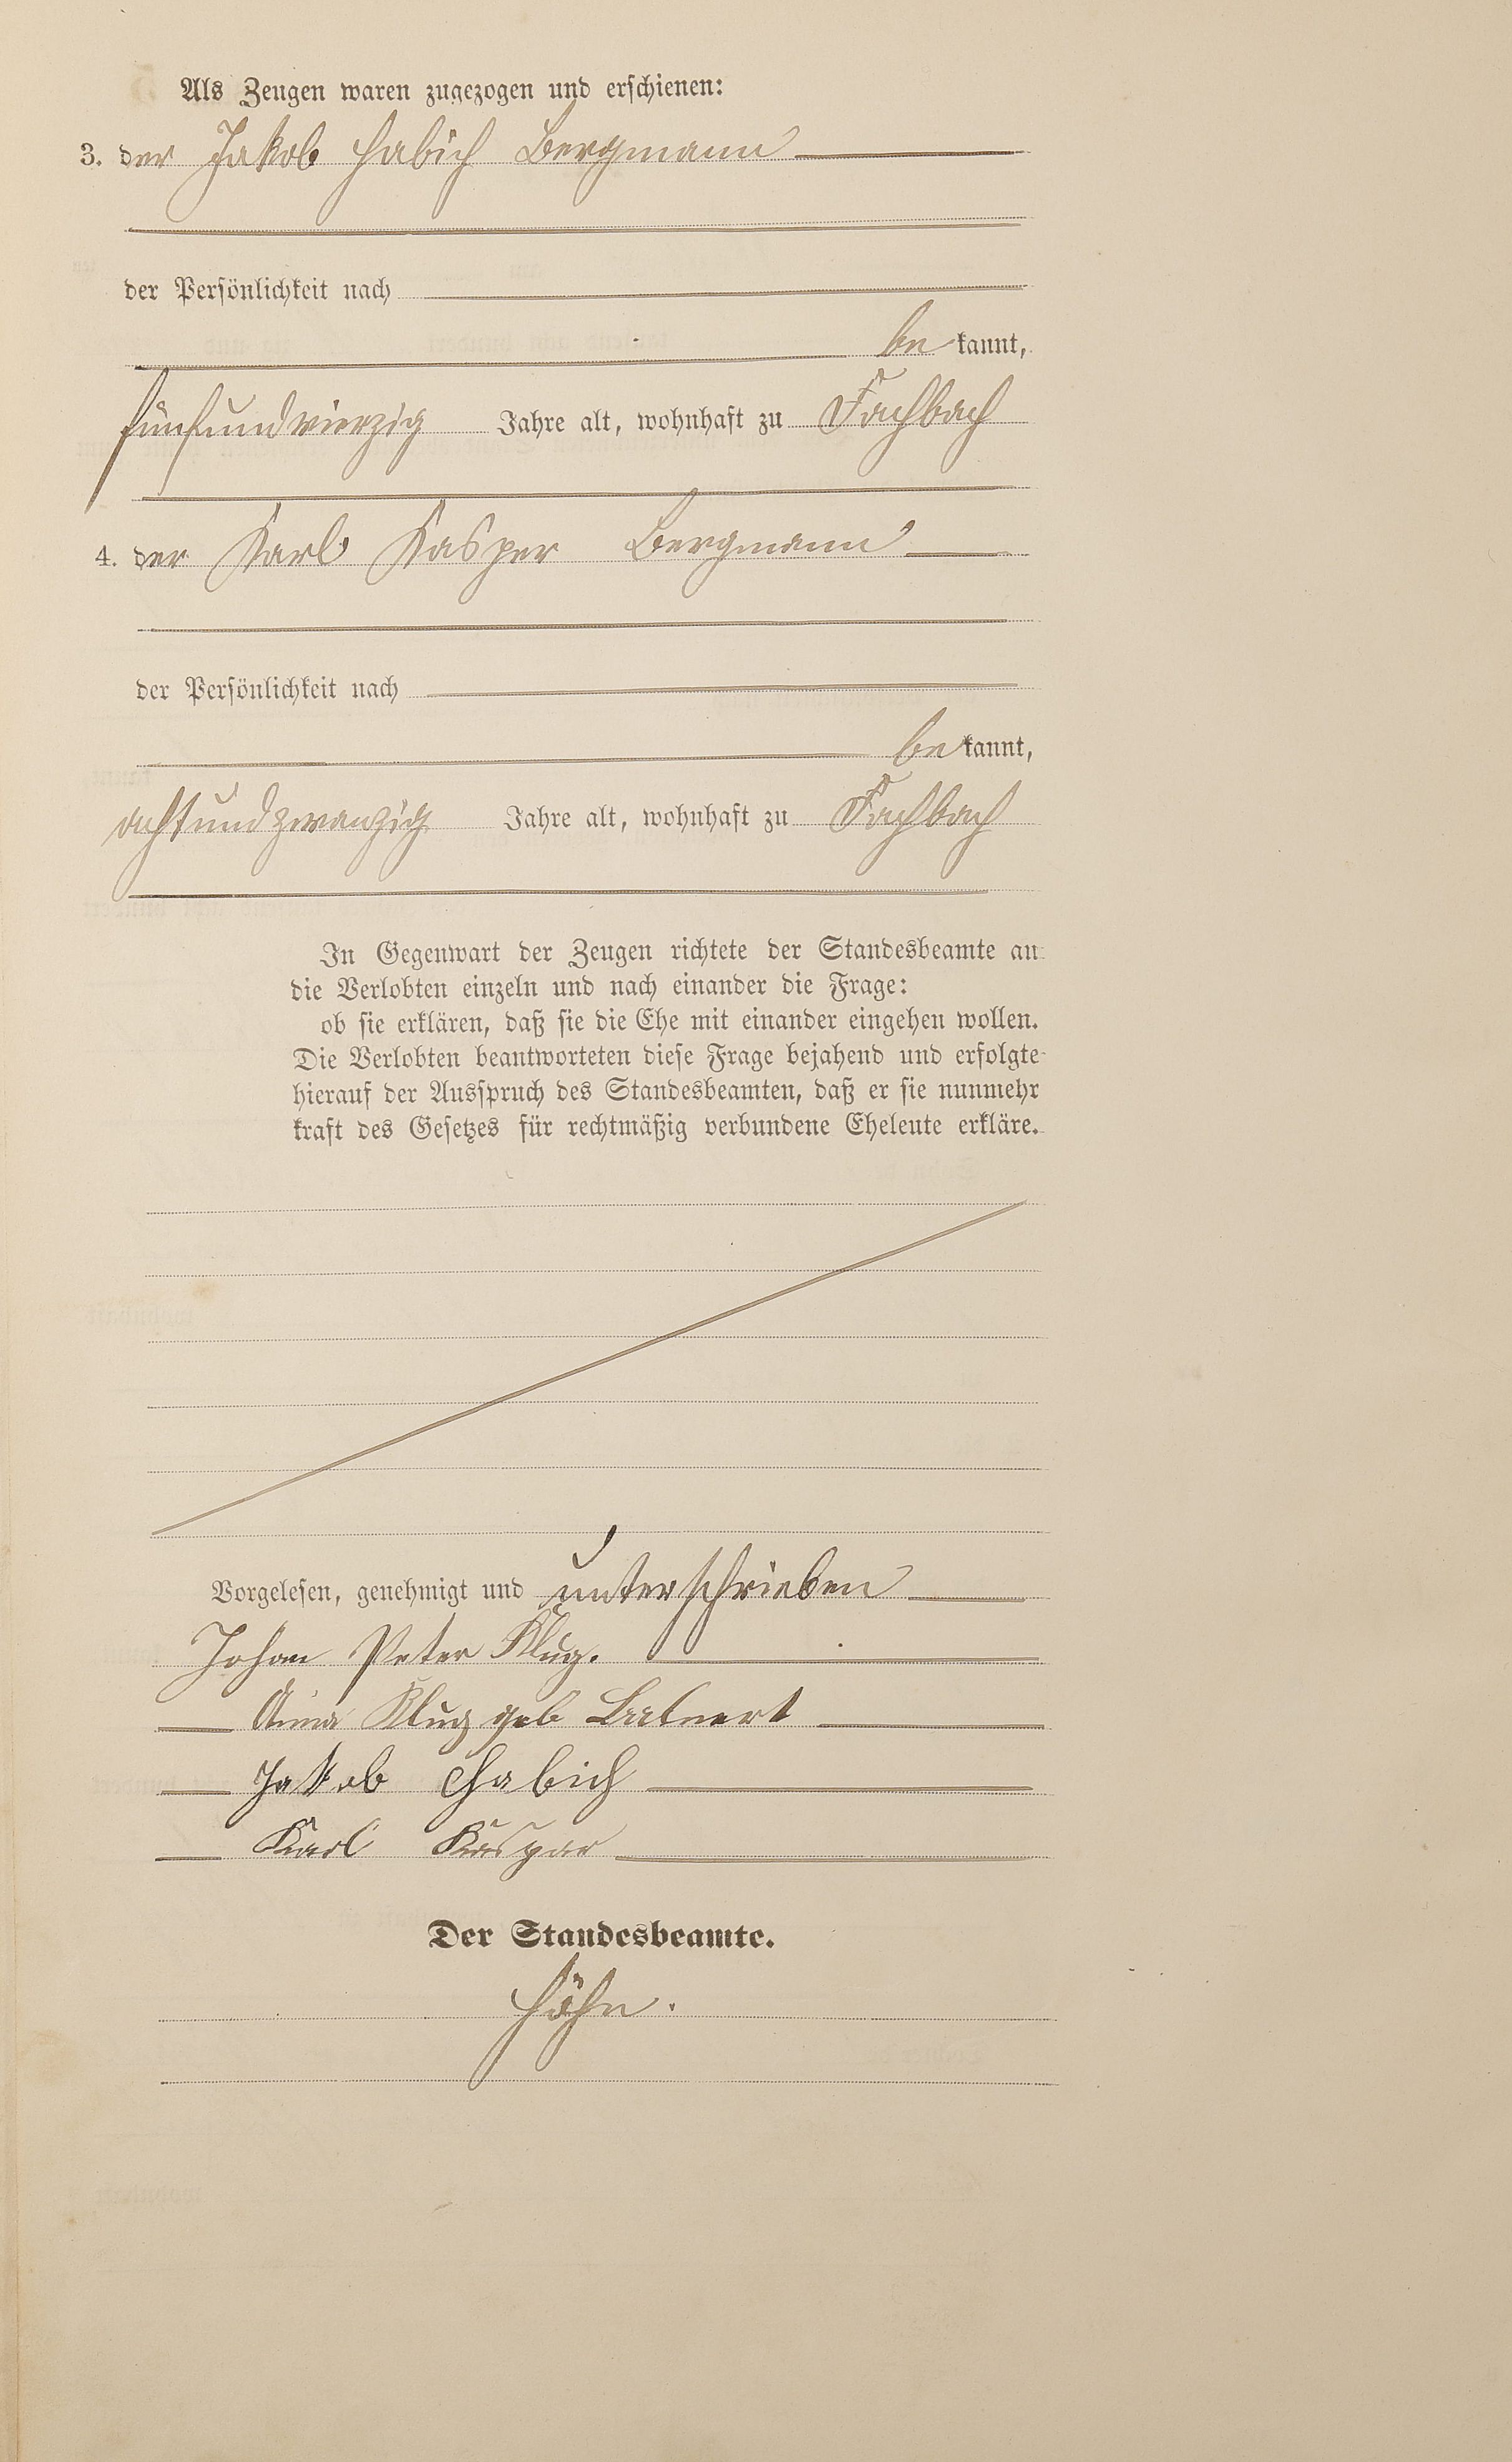 Als Zeugen waren zugezogen und erschienen:
3. der Jakob Habich Bergmann
der Persönlichkeit nach
be kannt,
fünfundvierzig Jahre alt, wohnhaft zu Fachbach
4. der Karl Kasper Bergmann
der Persönlichkeit nach
be kannt,
achtundzwanzig Jahre alt, wohnhaft zu Fachbach
In Gegenwart der Zeugen richtete der Standesbeamte an
die Verlobten einzeln und nach einander die Frage:
ob sie erklären, daß sie die Ehe mit einander eingehen wollen.
Die Verlobten beantworteten diese Frage bejahend und erfolgte
hierauf der Ausspruch des Standesbeamten, daß er sie nunmehr
kraft des Gesetzes für rechtmäßig verbundene Eheleute erkläre.
Vorgelesen, genehmigt und unterschrieben
Johan Peter Klug.
Anna Klug geb
Jakob Habich
Karl Kaspar
Der Standesbeamte.
Höhn.